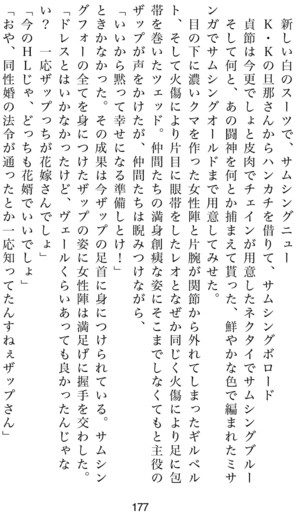 新しい白のスーツで、サムシングニュー
　Ｋ・Ｋの旦那さんからハンカチを借りて、サムシングボロード
　貞節は今更でしょと皮肉でチェインが用意したネクタイでサムシングブルー
　そして何と、あの闘神を何とか捕まえて貰った、鮮やかな色で編まれたミサ
ンガでサムシングオールドまで用意してみせた。
　目の下に濃いクマを作った女性陣と片腕が関節から外れてしまったギルベル
ト、そして火傷により片目に眼帯をしたレオとなぜか同じく火傷により足に包
帯を巻いたツェッド。仲間たちの満身創痍な姿にそこまでしなくてもと主役の
ザップが声をかけたが、仲間たちは睨みつけながら、
「いいから黙って幸せになる準備しとけ！」
ときかなかった。その成果は今ザップの足首に身につけられている。サムシン
グフォーの全てを身につけたザップの姿に女性陣は満足げに握手を交わした。
「ドレスとはいかなかったけど、ヴェールくらいあっても良かったんじゃな
い？　一応ザップっちが花嫁さんでしょ」
「今のＨＬじゃ、どっちも花婿でいいでしょ」
「おや、同性婚の法令が通ったとか一応知ってたんすねぇザップさん」
177